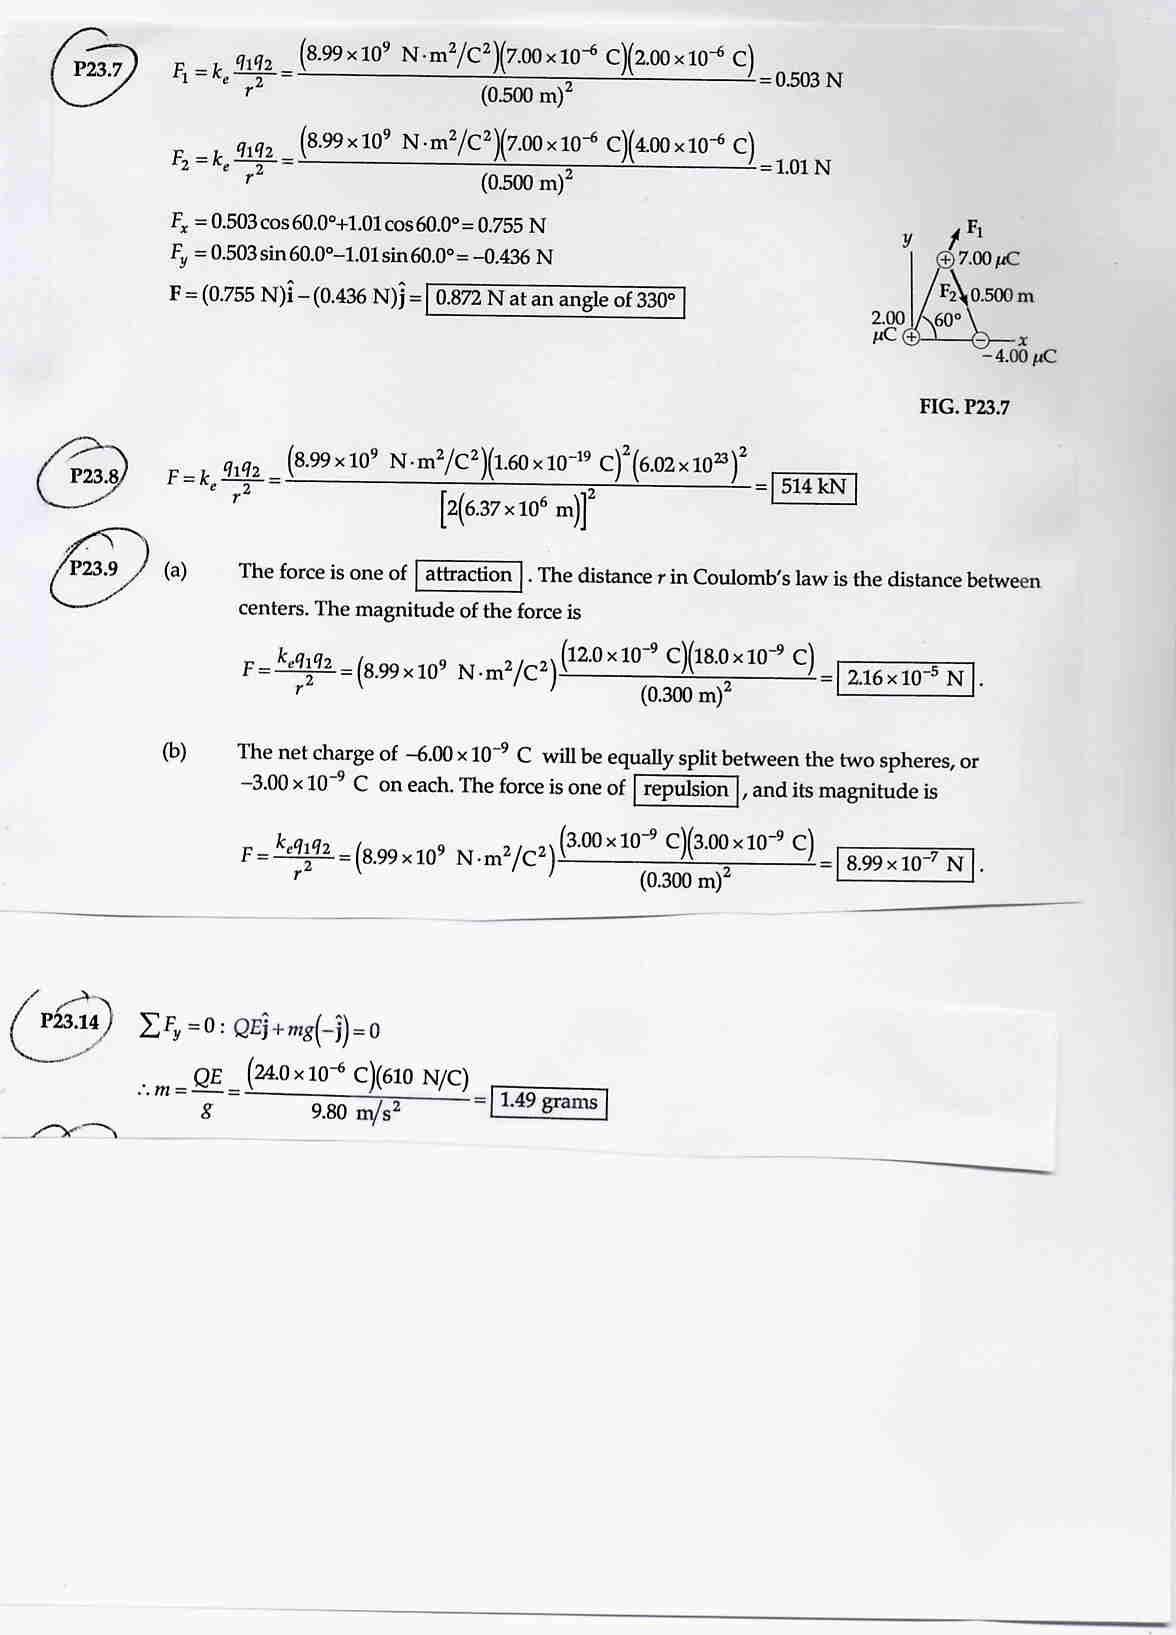 P23.7 F₁ = kₑ q₁q₂/r² = (8.99×10⁹ N·m²/C²)(7.00×10⁻⁶ C)(2.00×10⁻⁶ C)/(0.500 m)² = 0.503 N
F₂ = kₑ q₁q₂/r² = (8.99×10⁹ N·m²/C²)(7.00×10⁻⁶ C)(4.00×10⁻⁶ C)/(0.500 m)² = 1.01 N
Fₓ = 0.503 cos 60.0°+1.01 cos 60.0° = 0.755 N
F_y = 0.503 sin 60.0°−1.01 sin 60.0° = −0.436 N
F = (0.755 N)î − (0.436 N)ĵ = 0.872 N at an angle of 330°
y
F₁
7.00 μC
F₂
0.500 m
2.00
μC
60°
x
−4.00 μC
FIG. P23.7
P23.8 F = kₑ q₁q₂/r² = (8.99×10⁹ N·m²/C²)(1.60×10⁻¹⁹ C)²(6.02×10²³)²/[2(6.37×10⁶ m)]² = 514 kN
P23.9 (a) The force is one of attraction . The distance r in Coulomb's law is the distance between
centers. The magnitude of the force is
F = kₑq₁q₂/r² = (8.99×10⁹ N·m²/C²) (12.0×10⁻⁹ C)(18.0×10⁻⁹ C)/(0.300 m)² = 2.16×10⁻⁵ N .
(b) The net charge of −6.00×10⁻⁹ C will be equally split between the two spheres, or
−3.00×10⁻⁹ C on each. The force is one of repulsion , and its magnitude is
F = kₑq₁q₂/r² = (8.99×10⁹ N·m²/C²) (3.00×10⁻⁹ C)(3.00×10⁻⁹ C)/(0.300 m)² = 8.99×10⁻⁷ N .
P23.14 ∑F_y = 0 : QEĵ + mg(−ĵ) = 0
∴ m = QE/g = (24.0×10⁻⁶ C)(610 N/C)/9.80 m/s² = 1.49 grams